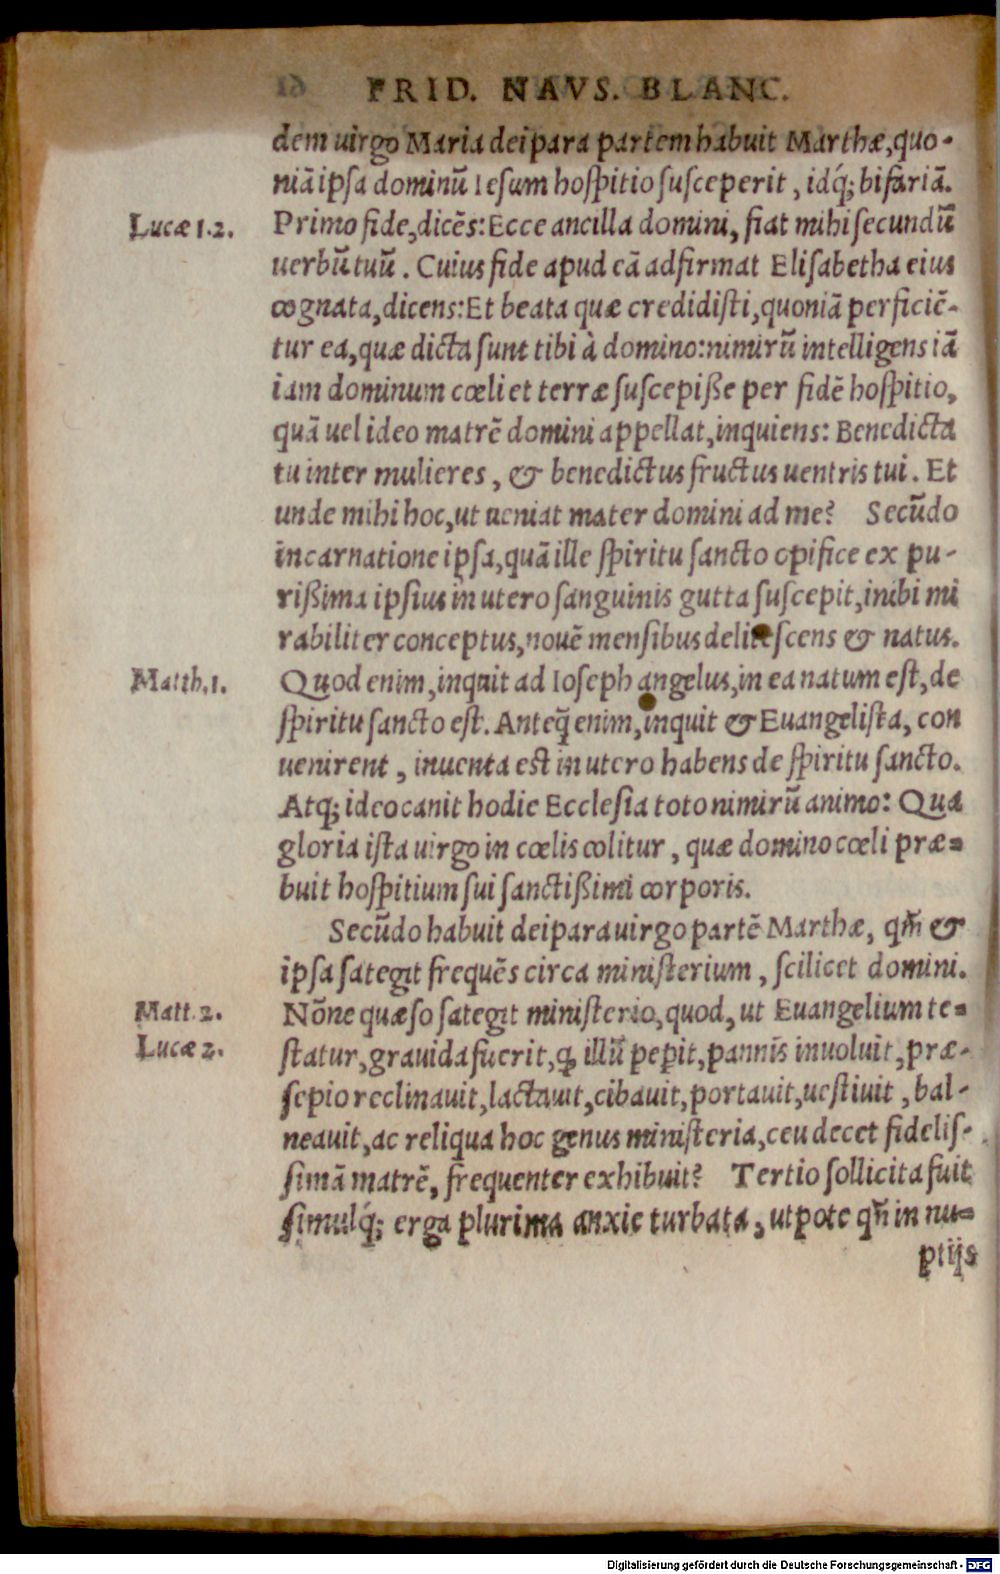 FRID. NAVS. BLANC.
dem uirgo Maria deipara partem habuit Marthæ, quo-
niā ipsa dominū Iesum hospitio susceperit, idq́; bifariā.
Lucæ 1.2.
Primo fide, dicēs: Ecce ancilla domini, fiat mihi secundū
uerbū tuū. Cuius fide apud eā adfirmat Elisabetha eius
cognata, dicens: Et beata quæ credidisti, quoniā perficiē-
tur ea, quæ dicta sunt tibi à domino: nimirū intelligens iā
iam dominum cœli et terræ suscepiße per fidē hospitio,
quā uel ideo matrē domini appellat, inquiens: Benedicta
tu inter mulieres, & benedictus fructus uentris tui. Et
unde mihi hoc, ut ueniat mater domini ad me? Secūdo
incarnatione ipsa, quā ille spiritu sancto opifice ex pu-
rißima ipsius in utero sanguinis gutta suscepit, inibi mi
rabiliter conceptus, nouē mensibus delitescens & natus.
Matth.1.
Quod enim, inquit ad Ioseph angelus, in ea natum est, de
spiritu sancto est. Anteq̄ enim, inquit & Euangelista, con
uenirent, inuenta est in utero habens de spiritu sancto.
Atq; ideo canit hodie Ecclesia toto nimirū animo: Qua
gloria ista uirgo in cœlis colitur, quæ domino cœli præ-
buit hospitium sui sanctißimi corporis.
Secūdo habuit deipara uirgo partē Marthæ, qm̄ &
ipsa sategit frequēs circa ministerium, scilicet domini.
Matt.2.
Nōne quæso sategit ministerio, quod, ut Euangelium te-
Lucæ 2.
statur, grauida fuerit, q̨ illū peꝑit, pannis inuoluit, præ-
sepio reclinauit, lactauit, cibauit, portauit, uestiuit, bal-
neauit, ac reliqua hoc genus ministeria, ceu decet fidelis-
simā matrē, frequenter exhibuit? Tertio sollicita fuit
simulq́; erga plurima anxie turbata, utpote qn̄ in nu-
ptijs
Digitalisierung gefördert durch die Deutsche Forschungsgemeinschaft - DFG